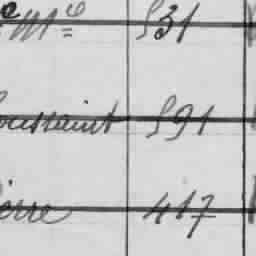 e Mlle 531
oussaint 591
ierre 417